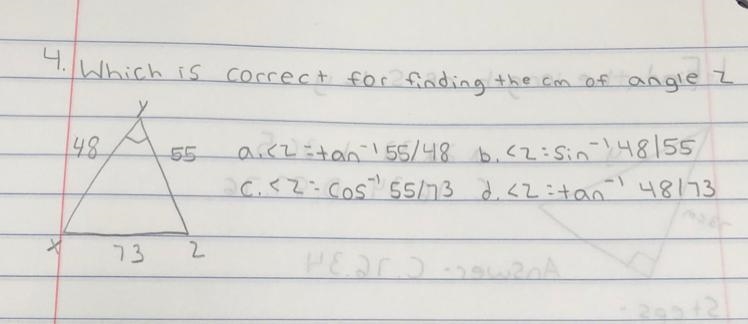 4. Which is correct for finding the cm of angle Z
Y
48
55
a. <Z = tan⁻¹ 55/48 b. <Z = sin⁻¹ 48/55
c. <Z = cos⁻¹ 55/73 d. <Z = tan⁻¹ 48/73
X 73 Z
Answer- C. 16.34